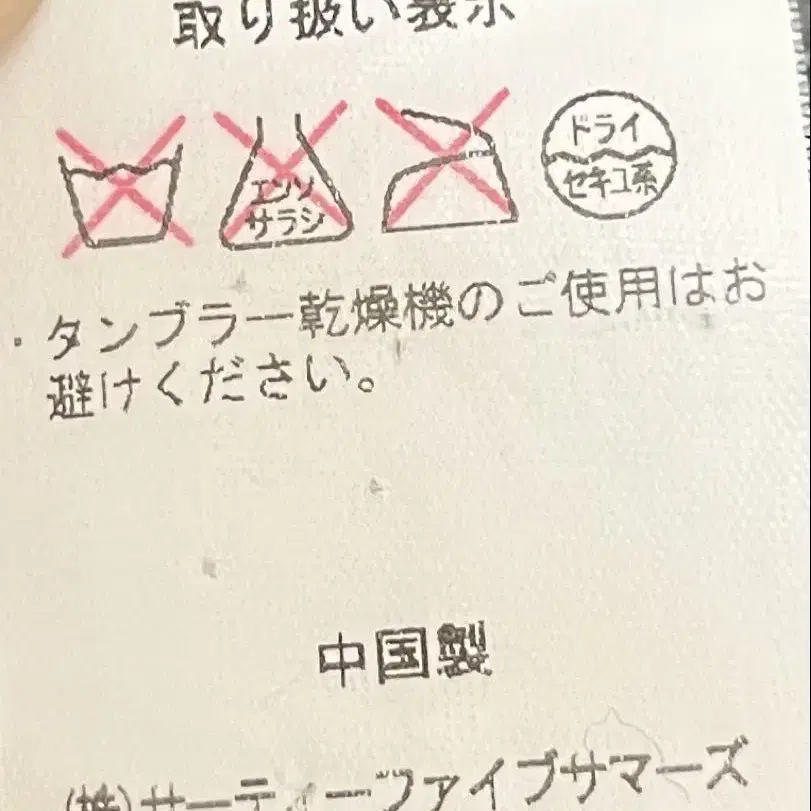 取り扱い表示
エンソ
サラシ
ドライ
セキユ系
・タンブラー乾燥機のご使用はお
避けください。
中国製
(株)サーティーファイブサマーズ